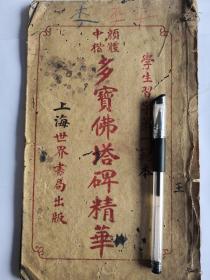 學生習
本
顏體
中楷
多寶佛塔碑精華
上海世界書局出版
王